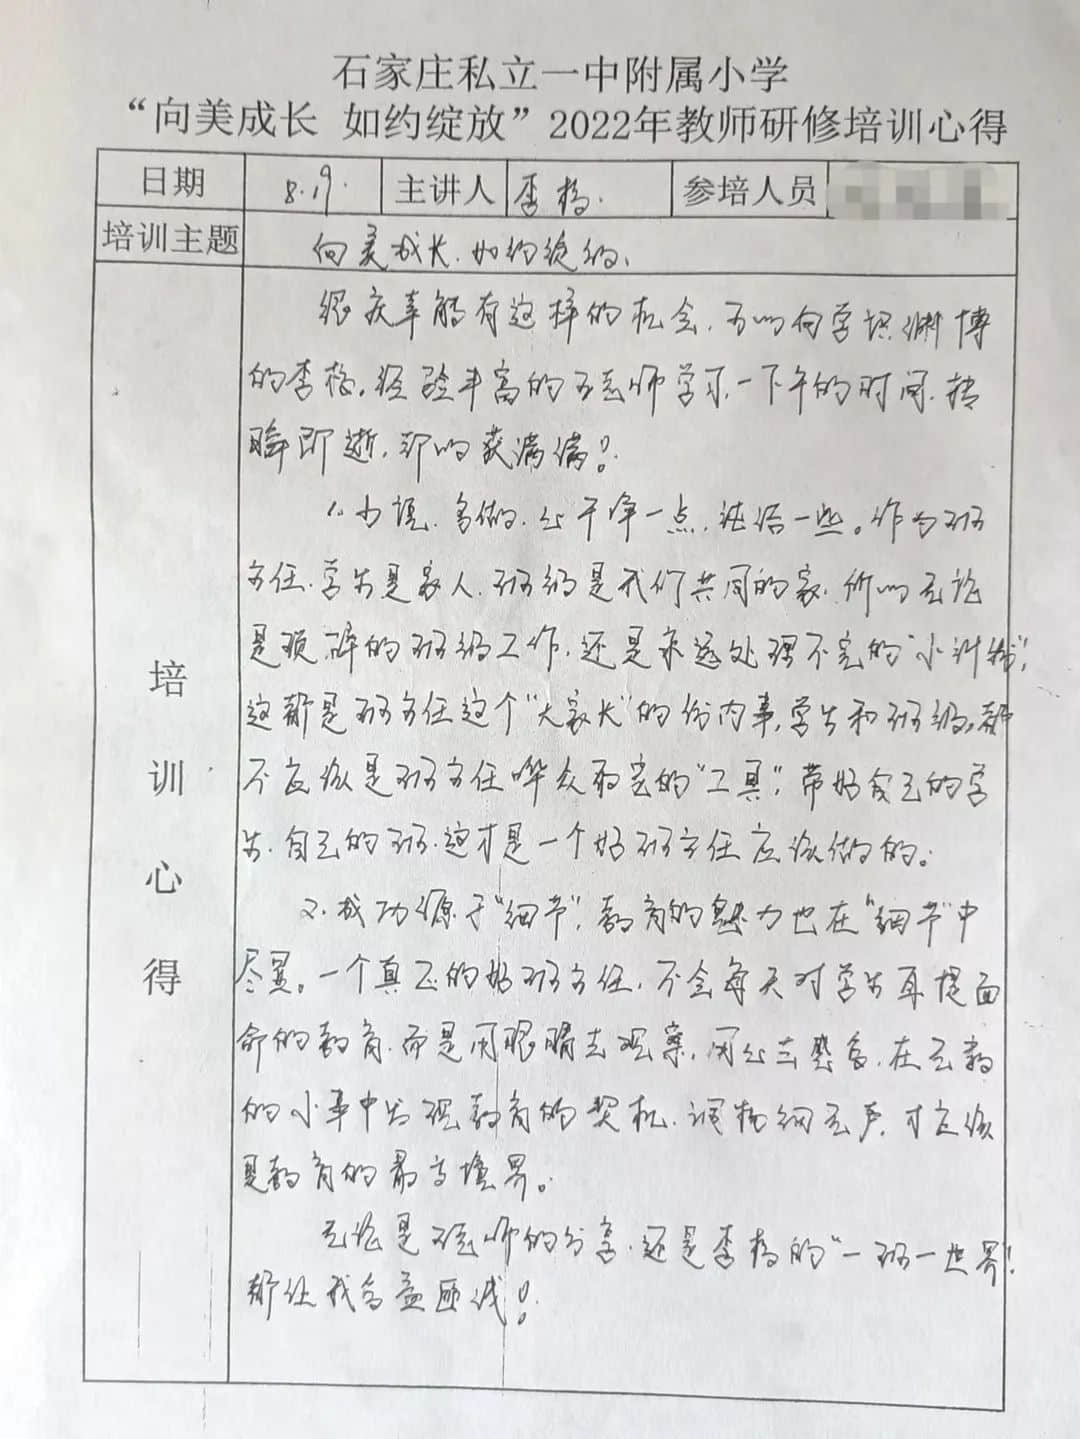 石家庄私立一中附属小学
“向美成长 如约绽放”2022年教师研修培训心得
日期 8.19. 主讲人 李杨. 参培人员
培训主题 向美成长.如约绽放.
培训心得
很庆幸能有这样的机会,可以向学识渊博
的李杨,经验丰富的王老师学习,一下午的时间,转
瞬即逝,却收获满满!
1.少说.多做.心干净一点,法治一些。作为班
主任.学生是家人.班级是我们共同的家.所以无论
是琐碎的班级工作,还是永远处理不完的“小纠纷”,
这都是班主任这个“大家长”的份内事,学生和班级,都
不应该是班主任哗众取宠的“工具”,带好自己的学
生.自己的班.这才是一个好班主任应该做的。
2.成功源于“细节”,教育的魅力也在“细节”中
尽显。一个真正的好班主任,不会每天对学生耳提面
命的教育,而是用眼睛去观察,用心去感受,在无数
的小事中发现教育的契机,润物细无声,才应该
是教育的最高境界。
无论是王老师的分享,还是李杨的“一班一世界”
都让我受益匪浅!